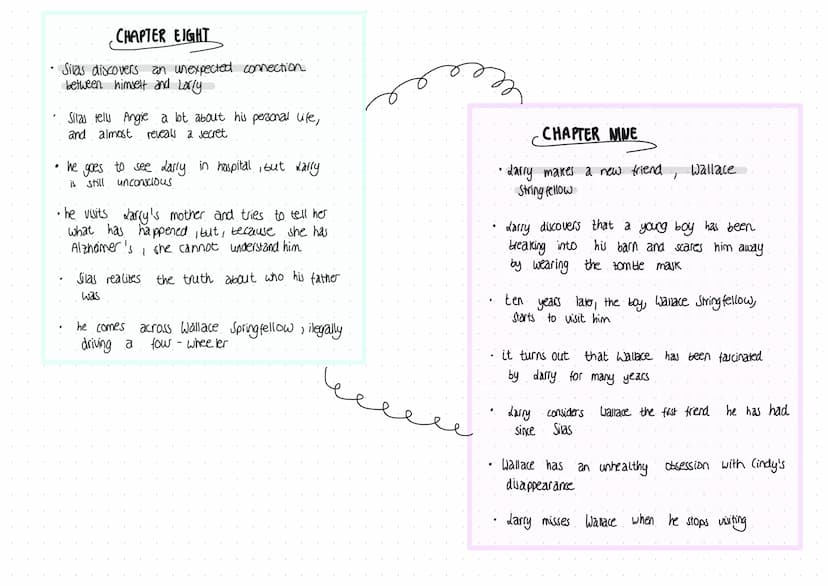 CHAPTER EIGHT
• Silas discovers an unexpected connection
between himself and Larry
• Silas tells Angie a lot about his personal life,
and almost reveals a secret
• he goes to see Larry in hospital, but Larry
is still unconscious
• he visits Larry's mother and tries to tell her
what has happened, but, because she has
Alzhamer's, she cannot understand him
• Silas realises the truth about who his father
was
• he comes across Wallace Springfellow, illegally
driving a four-wheeler
CHAPTER NINE
• Larry makes a new friend, Wallace
Stringfellow
• Larry discovers that a young boy has been
breaking into his barn and scares him away
by wearing the zombie mask
• ten years later, the boy, Wallace Stringfellow,
starts to visit him
• it turns out that Wallace has been fascinated
by Larry for many years
• Larry considers Wallace the first friend he has had
since Silas
• Wallace has an unhealthy obsession with Cindy's
disappearance
• Larry misses Wallace when he stops visiting